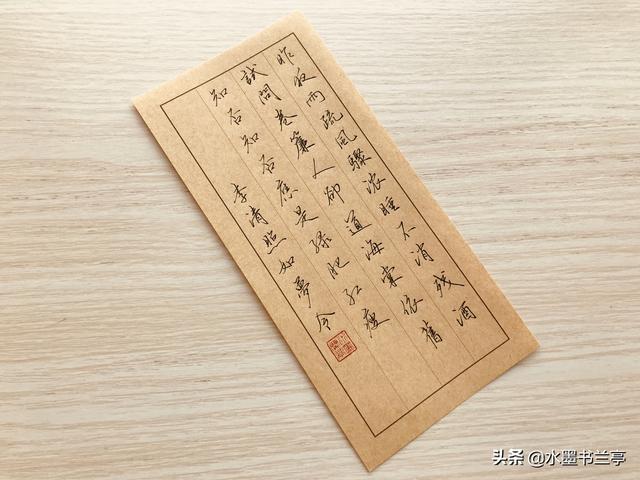 昨夜雨疏风骤浓睡不消残酒
試問卷簾人卻道海棠依舊
知否知否應是绿肥红瘦
李清照如夢令
头条 @水墨书兰亭